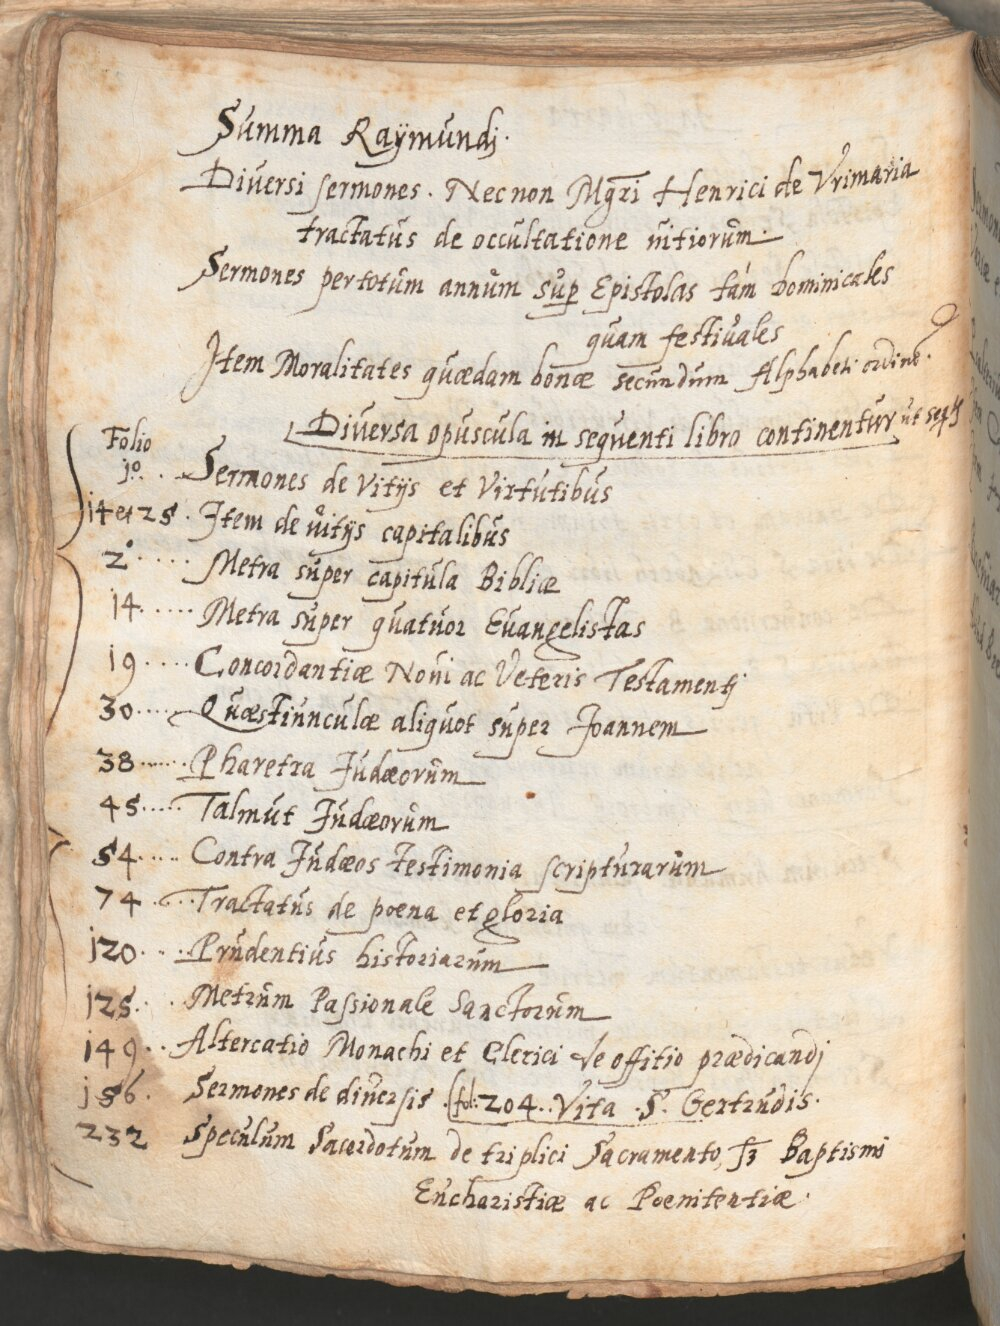 Summa Raÿmundj.
Diversi sermones. Necnon Mgr̃i Henrici de Vrimaria
tractatus de occultatione vitiorum.
Sermones per totum annum sup Epistolas tám dominicales
quam festivales
Jtem Moralitates quædam bonæ secundum Alphabeti ordine.
Diversa opuscula in sequenti libro continentur ut seq
Folio
jº. Sermones de Vitijs et Virtutibus
j4 et 25. Jtem de vitijs capitalibus
2º Metra super capitula Bibliæ
j4 Metra super quatuor Evangelistas
j9 Concordantiæ Noui ac Veteris Testamentj
30 Quæstiunculæ aliquot super Joannem
38 Pharetra Judæorum
45 Talmut Judæorum
54 Contra Judæos testimonia scripturarum
74 Tractatus de poena et gloria
j20 Prudentius historiarum
j25. Metrum Passionale Sanctorum
j49 Altercatio Monachi et Clerici de offitio prædicandj
j56. Sermones de diuersis fol. 204. Vita S. Gertrudis.
232 Speculum Sacerdotum de triplici Sacramento, Baptismi
Eucharistiæ ac Poenitentiæ.